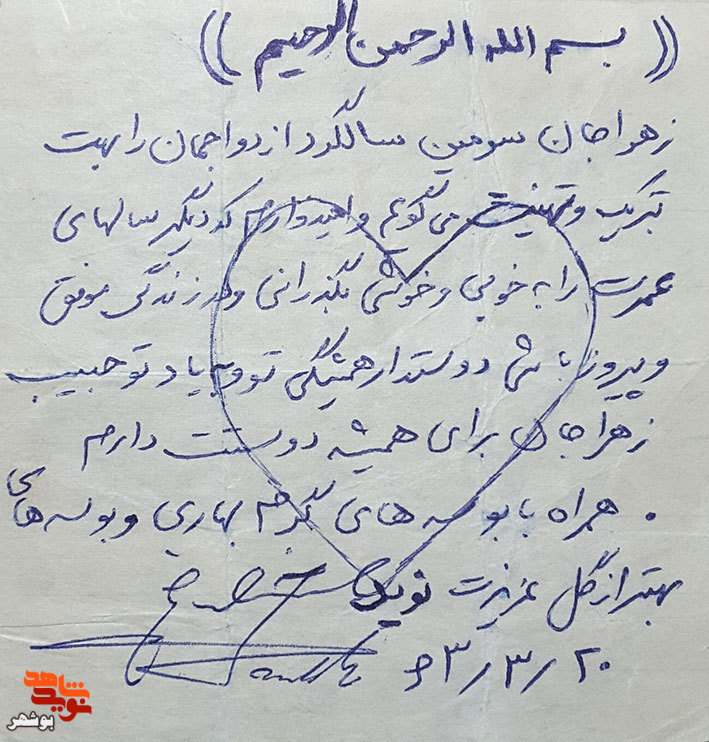 ((بسم الله الرحمن الرحیم))
زهرا جان سومین سالگرد ازدواجمان را بهت
تبریک و تهنیت می گویم و امیدوارم که دیگر سالهای
عمرت را به خوبی و خوشی بگذرانی و در زندگی موفق
و پیروز باشی دوستدار همیشگی تو و به یاد تو حبیب
زهرا جان برای همیشه دوستت دارم
. همراه با بوسه های گرم بهاری و بوسه های
بهتر از گل عزیزت نوید
۶۳/۳/۲۰
شاهد
نوید
بوشهر